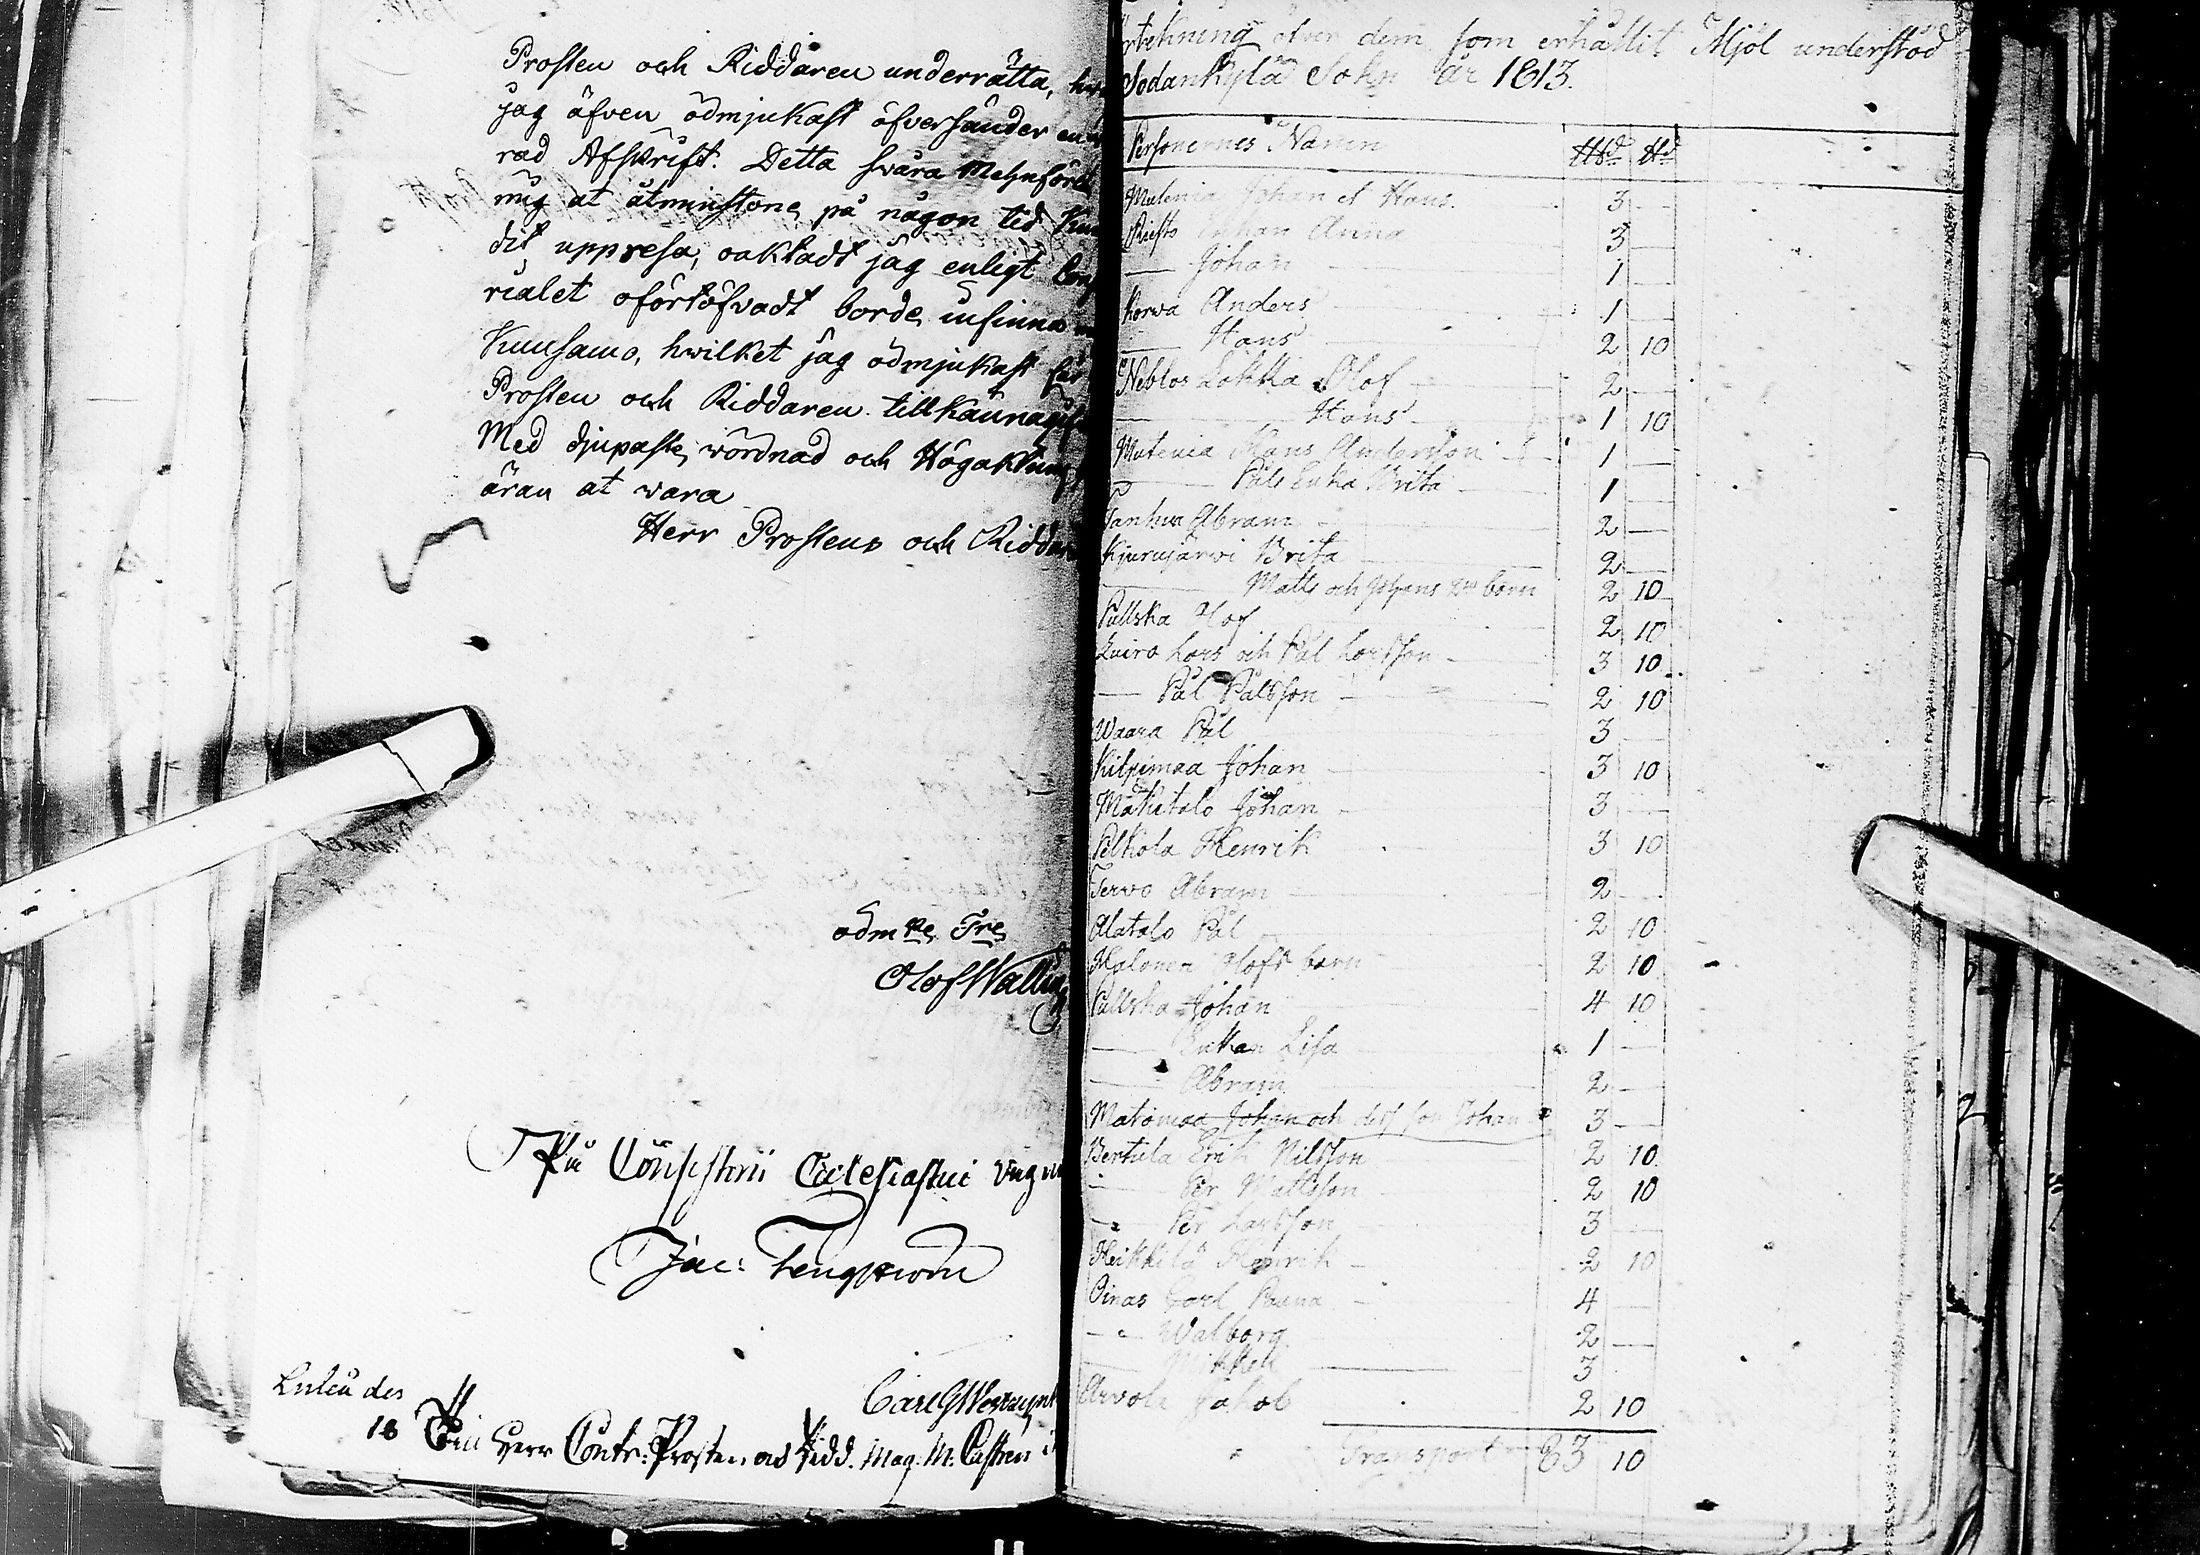 Prosten och Riddaren underrätta,
jag äfven ödmjukast öfversänder
rad Afskrift. Detta svåra
mig at åtminstone på någon tid
dit uppresa, oaktadt jag enligt
rialet oförtöfvadt borde infinna
Kuusamo, hwilket jag ödmjukast
Prosten och Riddaren
Med djupaste wördnad och
äran at wara
Herr Prostens och
ödmke Tre
Olof
På Consistorii Ecclesiastici
Jac: Tengström
Carl G
Luleå des
18
Herr Contr: Prosten och Ridd. Mag. M. Castrén
öfver dem som erhållit Mjöl understöd
Sodankylä Sokn år 1813.
Personernes Namn
Mutenia Johan et Hans. 3 —
Riesto Enkan Anna 3 —
— Johan 1 —
Korwa Anders 1 —
— Hans 2 10
Lokka Olof 2 —
— Hans 1 10
Mutenia Hans Andersson 1 —
— Påls Enka Brita 1 —
Tanhua Abram 2 —
Kjurujärwi Brita 2 —
— Matts och Johans barn 2 10
Pullska Olof 2 10
Luiro Lars och Pål Larsson 3 10
— Pål Pålsson 2 10
Waara Pål 3 —
Kilpimaa Johan 3 10
Mäkitalo Johan 3 —
Pelkola Henrik 3 10
Terwo Abram 2 —
Alatalo Pål 2 10
Halonen Olofs barn 2 10
Pullska Johan 4 10
— Enkan Lisa 1 —
— Abram 2 —
Johan och dess son Johan 3 —
Bertula Erik Nilsson 2 10
— Per Mattsson 2 10
— Per Larsson 3 —
Heikkilä Henrik 2 10
Oinas Carl 4 —
— Walborg 2 —
— 3
Arvola Jakob 2 10
Transport 83 10